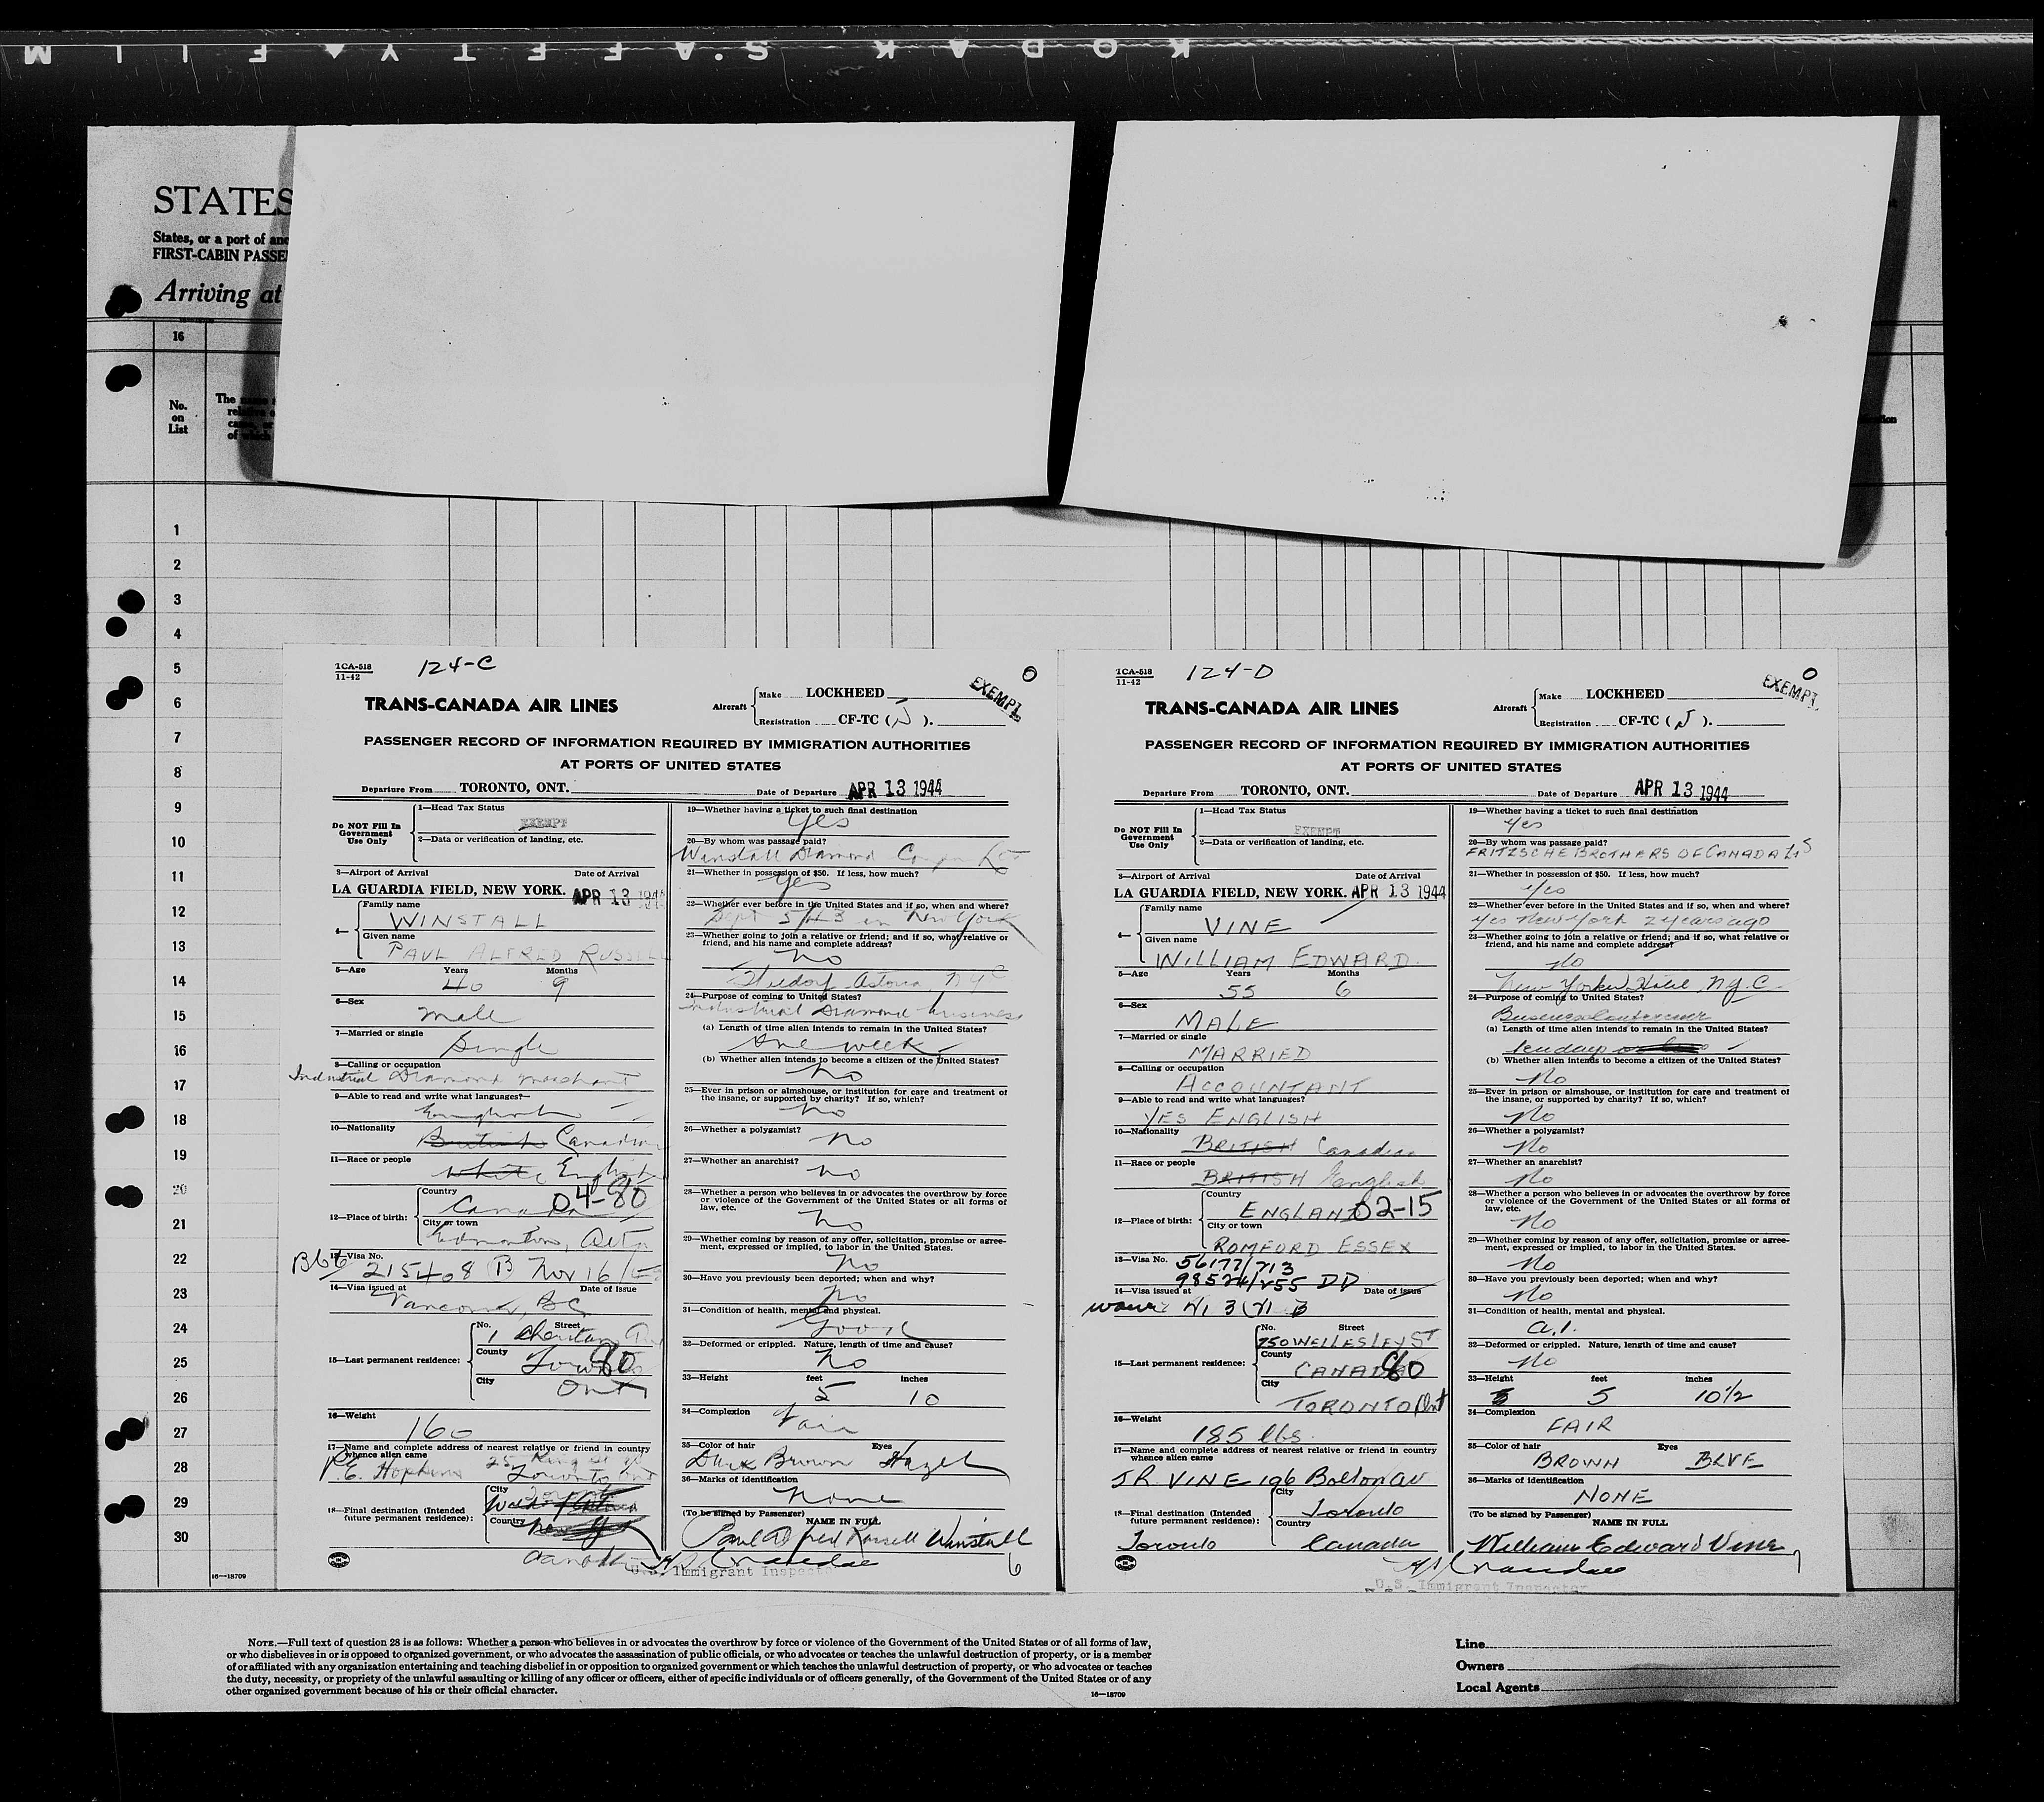 KODAK SAFETY FILM
STATES
States, or a port of
FIRST-CABIN
Arriving at
16
No.
on
List
The
of which
1
2
3
4
5
6
7
8
9
10
11
12
13
14
15
16
17
18
19
20
21
22
23
24
25
26
27
28
29
30
16—18709
TCA-518
11-42
124-C
O
EXEMPT
TRANS-CANADA AIR LINES
Aircraft
Make LOCKHEED
Registration CF-TC ( J ).
PASSENGER RECORD OF INFORMATION REQUIRED BY IMMIGRATION AUTHORITIES
AT PORTS OF UNITED STATES
Departure From TORONTO, ONT. Date of Departure APR 13 1944
Do NOT Fill In
Government
Use Only
1—Head Tax Status
EXEMPT
2—Data or verification of landing, etc.
3—Airport of Arrival Date of Arrival
LA GUARDIA FIELD, NEW YORK. APR 13 1944
4—
Family name
WINSTALL
Given name
PAUL ALFRED RUSSELL
5—Age Years Months
40 9
6—Sex
Male
7—Married or single
Single
8—Calling or occupation
Industrial Diamond Merchant
9—Able to read and write what languages?
10—Nationality
British Canadian
11—Race or people
White English
12—Place of birth:
Country
Canada 04-80
City or town
Edmonton, Alta
13—Visa No.
215408 B Nov 16/
14—Visa issued at Date of issue
Vancouver, BC
15—Last permanent residence:
No. Street
1
County
Toronto 80
City
Ont
16—Weight
160
17—Name and complete address of nearest relative or friend in country
whence alien came
P.E. Hopkins 25 King St W
Toronto Ont
18—Final destination (Intended
future permanent residence):
City
Toronto
Country
New York
Canada
19—Whether having a ticket to such final destination
Yes
20—By whom was passage paid?
Winstall Diamond
21—Whether in possession of $50. If less, how much?
Yes
22—Whether ever before in the United States and if so, when and where?
Sept 5/43 in New York
23—Whether going to join a relative or friend; and if so, what relative or
friend, and his name and complete address?
No
Astoria, NYC
24—Purpose of coming to United States?
Industrial Diamond business
(a) Length of time alien intends to remain in the United States?
One week
(b) Whether alien intends to become a citizen of the United States?
No
25—Ever in prison or almshouse, or institution for care and treatment of
the insane, or supported by charity? If so, which?
No
26—Whether a polygamist?
No
27—Whether an anarchist?
No
28—Whether a person who believes in or advocates the overthrow by force
or violence of the Government of the United States or all forms of
law, etc.
No
29—Whether coming by reason of any offer, solicitation, promise or agree-
ment, expressed or implied, to labor in the United States.
No
30—Have you previously been deported; when and why?
No
31—Condition of health, mental and physical.
Good
32—Deformed or crippled. Nature, length of time and cause?
No
33—Height feet inches
5 10
34—Complexion
Fair
35—Color of hair Eyes
Dark Brown Hazel
36—Marks of identification
None
(To be signed by Passenger)
NAME IN FULL
Paul Alfred Russell Winstall
U.S. Immigrant Inspector
6
TCA-518
11-42
124-D
O
EXEMPT
TRANS-CANADA AIR LINES
Aircraft
Make LOCKHEED
Registration CF-TC ( J ).
PASSENGER RECORD OF INFORMATION REQUIRED BY IMMIGRATION AUTHORITIES
AT PORTS OF UNITED STATES
Departure From TORONTO, ONT. Date of Departure APR 13 1944
Do NOT Fill In
Government
Use Only
1—Head Tax Status
EXEMPT
2—Data or verification of landing, etc.
3—Airport of Arrival Date of Arrival
LA GUARDIA FIELD, NEW YORK. APR 13 1944
4—
Family name
VINE
Given name
WILLIAM EDWARD
5—Age Years Months
55 6
6—Sex
MALE
7—Married or single
MARRIED
8—Calling or occupation
ACCOUNTANT
9—Able to read and write what languages?
YES ENGLISH
10—Nationality
BRITISH Canadian
11—Race or people
BRITISH English
12—Place of birth:
Country
ENGLAND 02-15
City or town
ROMFORD ESSEX
13—Visa No. 56177/713
98524/255 DD
14—Visa issued at Date of issue
15—Last permanent residence:
No. Street
750 WELLESLEY ST
County
CANADA 80
City
TORONTO Ont
16—Weight
185 lbs.
17—Name and complete address of nearest relative or friend in country
whence alien came
J R. VINE 196 Bolton av
18—Final destination (Intended
future permanent residence):
City
Toronto
Country
Toronto Canada
19—Whether having a ticket to such final destination
Yes
20—By whom was passage paid?
FRITZSCHE BROTHERS OF CANADA
21—Whether in possession of $50. If less, how much?
Yes
22—Whether ever before in the United States and if so, when and where?
Yes New York 2 years ago
23—Whether going to join a relative or friend; and if so, what relative or
friend, and his name and complete address?
No
New Yorker Hotel, N.Y.C.
24—Purpose of coming to United States?
Business Conference
(a) Length of time alien intends to remain in the United States?
ten days
(b) Whether alien intends to become a citizen of the United States?
No
25—Ever in prison or almshouse, or institution for care and treatment of
the insane, or supported by charity? If so, which?
No
26—Whether a polygamist?
No
27—Whether an anarchist?
No
28—Whether a person who believes in or advocates the overthrow by force
or violence of the Government of the United States or all forms of
law, etc.
No
29—Whether coming by reason of any offer, solicitation, promise or agree-
ment, expressed or implied, to labor in the United States.
No
30—Have you previously been deported; when and why?
No
31—Condition of health, mental and physical.
A.1.
32—Deformed or crippled. Nature, length of time and cause?
No
33—Height feet inches
5 10½
34—Complexion
FAIR
35—Color of hair Eyes
BROWN BLUE
36—Marks of identification
NONE
(To be signed by Passenger)
NAME IN FULL
William Edward Vine
U.S. Immigrant Inspector
7
NOTE.—Full text of question 28 is as follows: Whether a person who believes in or advocates the overthrow by force or violence of the Government of the United States or of all forms of law,
or who disbelieves in or is opposed to organized government, or who advocates the assassination of public officials, or who advocates or teaches the unlawful destruction of property, or is a member
of or affiliated with any organization entertaining and teaching disbelief in or opposition to organized government or which teaches the unlawful destruction of property, or who advocates or teaches
the duty, necessity, or propriety of the unlawful assaulting or killing of any officer or officers, either of specific individuals or of officers generally, of the Government of the United States or of any
other organized government because of his or their official character.
16—18709
Line
Owners
Local Agents